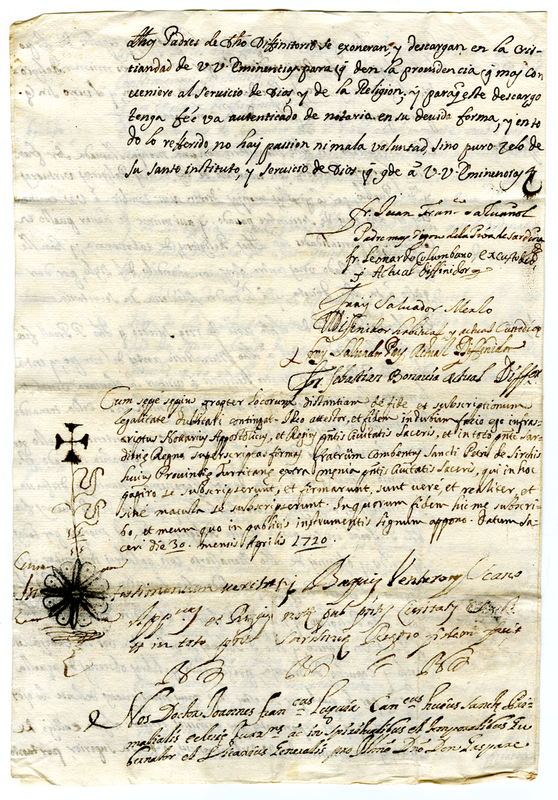 dhos Padres de dho Diffinitorio se exoneran, y descargan en la Cris
tiandad de V. V. Eminencias para q̃ den la providencia q̃ mas con
veniere al Servicio de Dios y de la Religion, y para q̃ este descargo
tenga feé va autenticado de notario en su devida forma, y en to
do lo referido no hay passion ni mala voluntad, sino puro zelo de
su santo instituto, y servicio de Dios q̃ gde a V. V. Eminencias
fr. Juan Fran.co Saluañol
Padre mas digno de la Prov.a de Sardeña
fr. Leonardo Columbano, Excustode
y Actual Diffinidor
Fray Salvador Mealo
Diffinidor y actual Custodio
fray Salvador Poy Actual Diffinidor
Fr Sebastian Bonavia actual Diffr
Cum sepe sepius propter locorum distantiam de fide et subscriptionum
legalitate dubitari contingat. Ideo attestor, et fidem indubiam facio ego infras
criptus Notarius Apostolicus, et Regius pntis Civitatis Saceris, et in toto pnti Sar
diniæ Regno suprascriptas firmas Fratrum Conventus Sancti Petri de Sirchis
huius Provintiæ Turritanæ extra menia pntis Civitatis Saceris, qui in hoc
papiro se subscripserunt, et firmarunt, sunt veré, et realiter, et
siné macula se subscripserunt. In quorum fidem hic me subscri-
bo, et meum quo in publicis instrumentis signum appono. Datum Sa-
ceri die 30. mensis Aprilis 1720.
In testimonium veritatis
App.cus et Regius not.s pub. pntis Civitatis
et in toto pnti Sardiniæ Regno fidem facio
Nos Doctor Joannes Fran.cus Can.cus huius Sanctæ Pri-
matialis eclesiæ Turr.nis ac in Spiritualibus et temporalibus Gu-
bernator et Vicarius Generalis pro Illmo Dno Don Gaspare